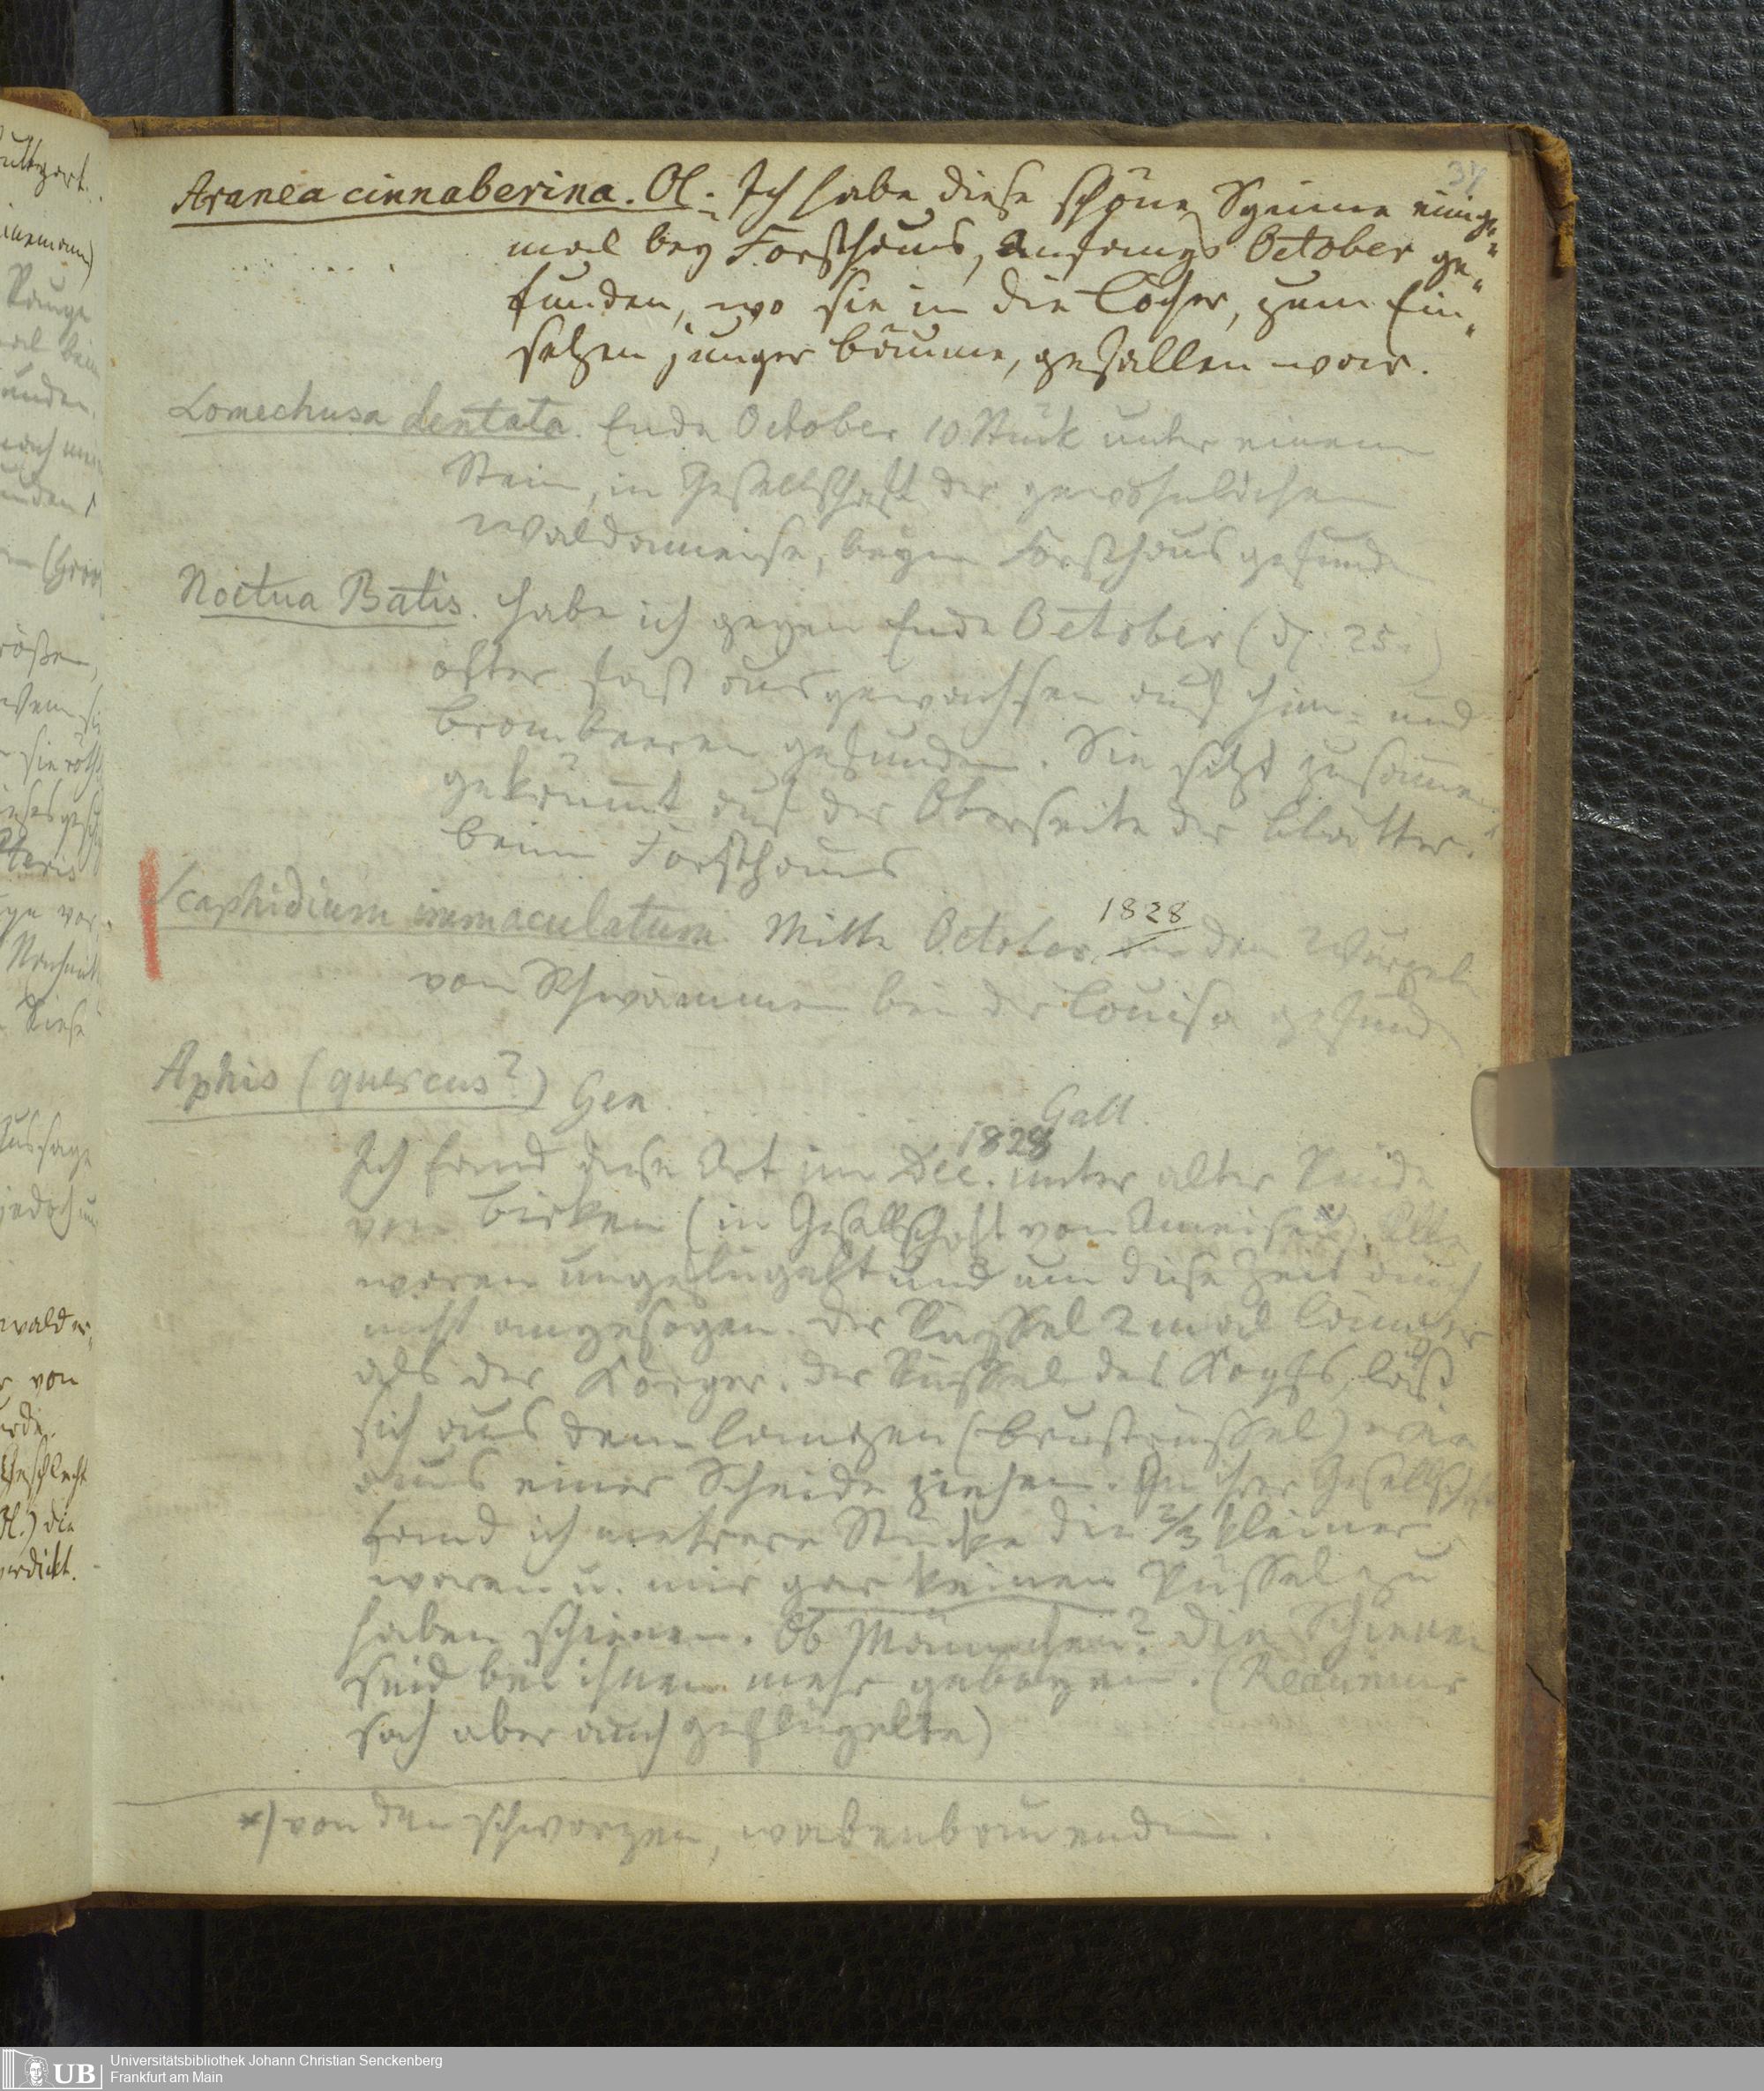 37
Aranea cinnaberina. Ol. Ich habe diese schöne Spinne einige
mal bey Forsthaus, Anfangs October ge„
funden, wo sie in die Löcher, zum Ein„
setzen junger Bäume, gefallen war.
Lomechusa dentata. Ende October 10 Stück unter einem
Stein, in Gesellschaft der gewöhnlichen
Waldameise, beym Forsthaus gefunden
Noctua Batis. habe ich gegen Ende October (d: 25.)
öfter fast ausgewachsen auf Him- und
Brombeeren gefunden. Sie sitzt zusammen
gekrümmt auf der Oberseite der Blätter.
beim Forsthaus
Scaphidium immaculatum. Mitte October 1828 an den Wurzeln
von Schwämmen bei der Louisa gefund
Aphis (quercus?) Gen Gall.
Ich fand diese Art im Dec. 1828 unter alter Rinde
von Birken (in Gesellschaft von Ameisen *). Alle
waren ungeflügelt und um diese Zeit auch
nicht angesogen. Der Rüssel 2 mal länger
als der Körper. Der Rüssel des Kopfs, läßt
sich aus dem langen (Brustrüssel) wie
aus einer Scheide ziehen. In ihrer Gesellschaft
fand ich mehrere Stücke die 2/3 kleiner
waren u. mir gar keinen Rüssel zu
haben schienen. Ob Männchen? Die Schienen
sind bei ihnen mehr gebogen. (Reaumur
sah aber auch geflügelte)
*) von den schwarzen, wabenbauenden.
Universitätsbibliothek Johann Christian Senckenberg
Frankfurt am Main
UB